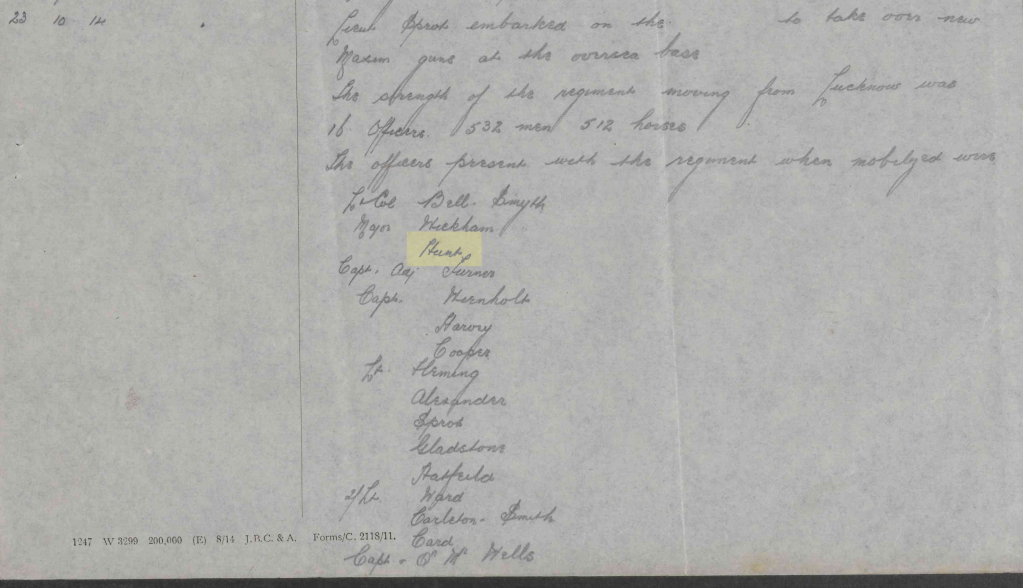 23 10 14
Lieut Sprot embarked on the to take over new
Maxim guns at the oversea base
The strength of the regiment moving from Lucknow was
16 Officers 532 men 512 horses
The officers present with the regiment when mobelyzed were
Lt Col Bell-Smyth
Major Wickham
Hunt
Capt. Adj Turner
Capt. Wienholt
Harvey
Cooper
Lt. Fleming
Alexander
Sprot
Gladstone
Hatfeild
2/Lt. Ward
Carleton-Smith
Card
Capt & Q M Wells
1247 W 3299 200,000 (E) 8/14 J.B.C. & A. Forms/C. 2118/11.